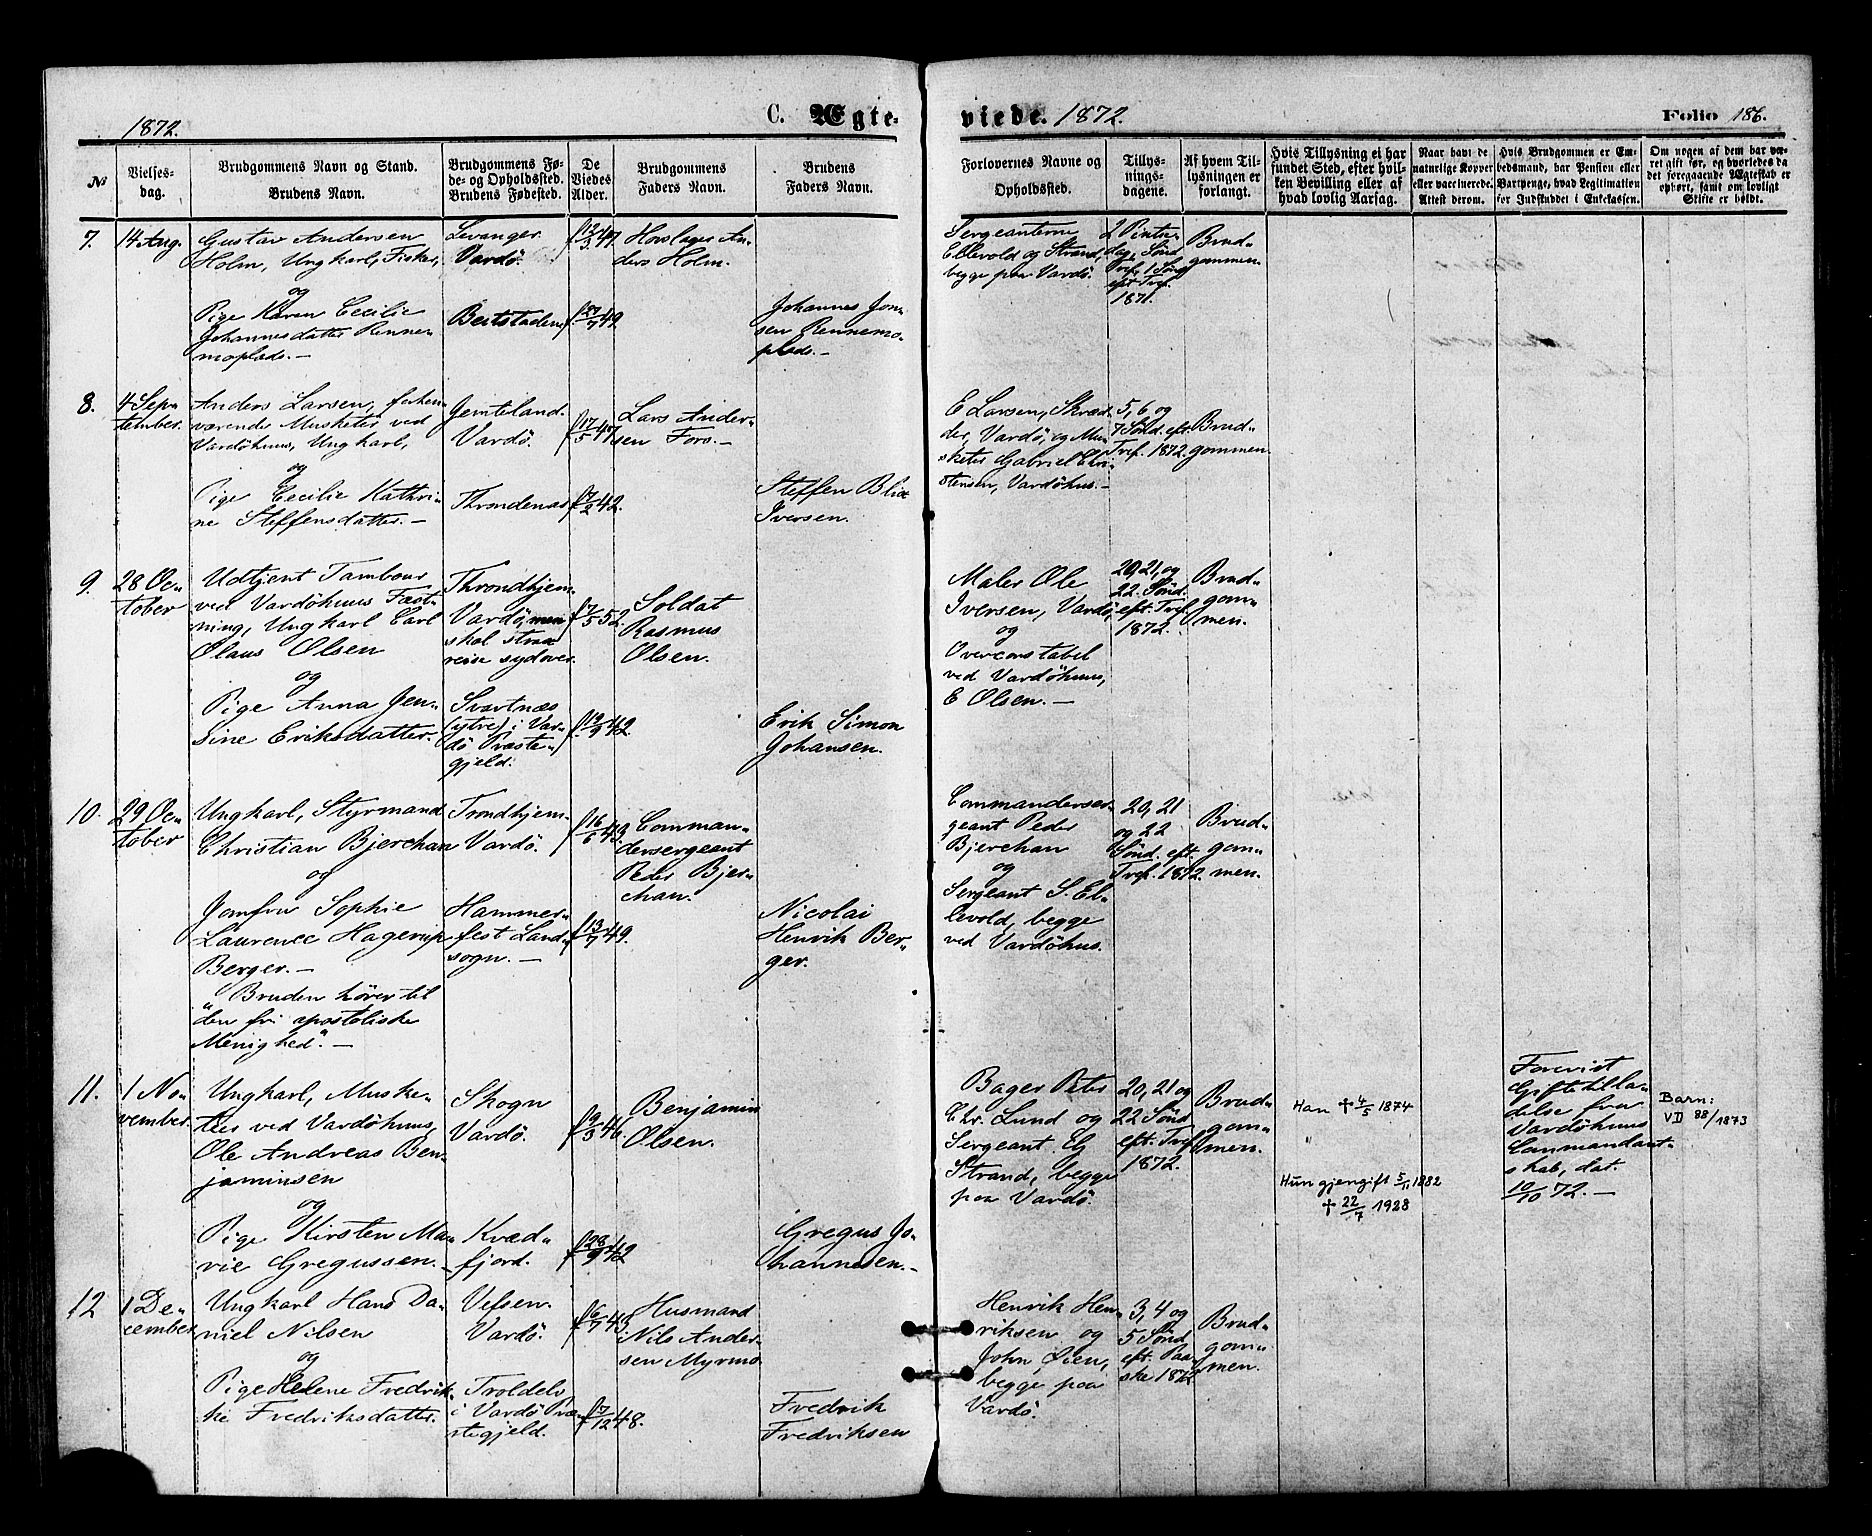 1872.
C. Ægte-
viede. 1872.
Folio 186.
№
Vielses-
dag.
Brudgommens Navn og Stand.
Brudens Navn.
Brudgommens Fø-
de- og Opholdssted.
Brudens Fødested.
De
Viedes
Alder.
Brudgommens
Faders Navn.
Brudens
Faders Navn.
Forlovernes Navne og
Opholdssted.
Tillys-
nings-
dagene.
Af hvem Til-
lysningen er
forlangt.
Hvis Tillysning ei har
fundet Sted, efter hvil-
ken Bevilling eller af
hvad lovlig Aarsag.
Naar havt de
naturlige Kopper
eller vaccinerede.
Attest derom.
Hvis Brudgommen er Em-
bedsmand, har Pension eller
Vartpenge, hvad Legitimation
for Indskuddet i Enkekassen.
Om nogen af dem har væ-
ret gift før, og hvorledes da
det foregaaende Ægteskab er
ophørt, samt om lovligt
Skifte er holdt.
7.
14 Aug.
Gustav Andersen
Holm, Ungkarl, Fisker,
og
Pige Karen Cecilie
Johannesdatter Rennе-
moplads.—
Levanger.
Vardö.
Beitstaden
f 12/3 47.
f 27/7 49
Hovslager An-
ders Holm.
Johannes Jon-
sen Rennemo-
plads.—
Sergeanterne
Ellevold og Strand,
begge paa Vardö.
2 Pintse-
dag, Sønd
Tref, 1 Sønd
eft Tref.
1871.
Brud-
gommen.
8.
4 Sep-
tember.
Anders Larsen, forhen-
værende Musketer ved
Vardöhuus, Ungkarl,
og
Pige Cecilie Kathri-
ne Steffensdatter.—
Jemteland.
Vardö.
Throndenæs
f 17/5 47.
f 7/2 42.
Lars Ander-
sen Fors.—
Steffen Blix
Iversen.
E Larsen, Skræd-
der, Vardö, og Mu-
sketer Gabriel Chri-
stensen, Vardöhus.—
5, 6 og
7 Sönd. eft.
Tref. 1872.
Brud-
gommen.
9.
28 Oc-
tober
Udtjent Tambour
ved Vardöhuus Fæst-
ning, Ungkarl Carl
Olaus Olsen
og
Pige Anna Jen-
sine Eriksdatter.
Throndhjem
Vardö, men
skal strax
reise sydover.
Svartnæs
(ytre) i Var-
dö Præste-
gjeld.
f 7/5 52.
f 12/9 42.
Soldat
Rasmus
Olsen.
Erik Simon
Johansen.
Maler Ole
Iversen, Vardö,
og
Overconstabel
ved Vardöhuus,
E Olsen.—
20, 21, og
22. Sönd.
eft. Tref.
1872.
Brud-
gom-
men.
10.
29 Oc-
tober
Ungkarl, Styrmand
Christian Bjerchan
og
Jomfru Sophie
Laurence Hagerup
Berger.—
"Bruden hører til
den fri apostoliske
Menighed".—
Trondhjem.
Vardö.
Hammer-
fest Land-
sogn.—
f 16/6 43.
f 13/7 49.
Comman-
dersergeant
Peder Bjer-
chan.
Nicolai
Henrik Ber-
ger.
Commanderser-
geant Peder
Bjerchan
og
Sergeant S. El-
levold, begge
ved Vardöhus.
20, 21
og 22
Sönd. eft.
Tref. 1872.
Brud-
gom-
men.
11.
1 No-
vember.
Ungkarl, Muske-
teer ved Vardöhuus,
Ole Andreas Ben-
jaminsen
og
Pige Kirsten Ma-
rie Gregussen.
Skogn
Vardö.
Kvæd-
fjord.
f 9/3 46.
f 28/9 42
Benjamin
Olsen.
Gregus Jo-
hannesen.—
Bager Peter
Chr. Lund og
Sergeant Elg
Strand, begge
paa Vardö.
20, 21 og
22 Sönd
eft. Tref.
1872.
Brud-
gom-
men.
Han ✝ 4/5 1874
"
Hun gjengift 5/11 1882
✝ 22/7 1928
Forevist
Giftetilla-
delse fra
Vardöhuus
Commandant-
skab, dat.
10/10 72.—
Barn:
VD 88/1873
12
1 De-
cember
Ungkarl Hans Da-
niel Nilsen
og
Pige Helene Fredrik-
ke Fredriksdatter.
Vefsen.
Vardö.
Troldelv
i Vardö Præ-
stegjeld.
f 6/7 43.
f 7/12 48.
Husmand
Nils Ander-
sen Myrmo
Fredrik
Fredriksen
Henrik Hen-
riksen og
John Øien,
begge paa
Vardö.
3, 4 og
5 Sönd
eft. Paa-
ske 1872
Brud-
gom-
men.